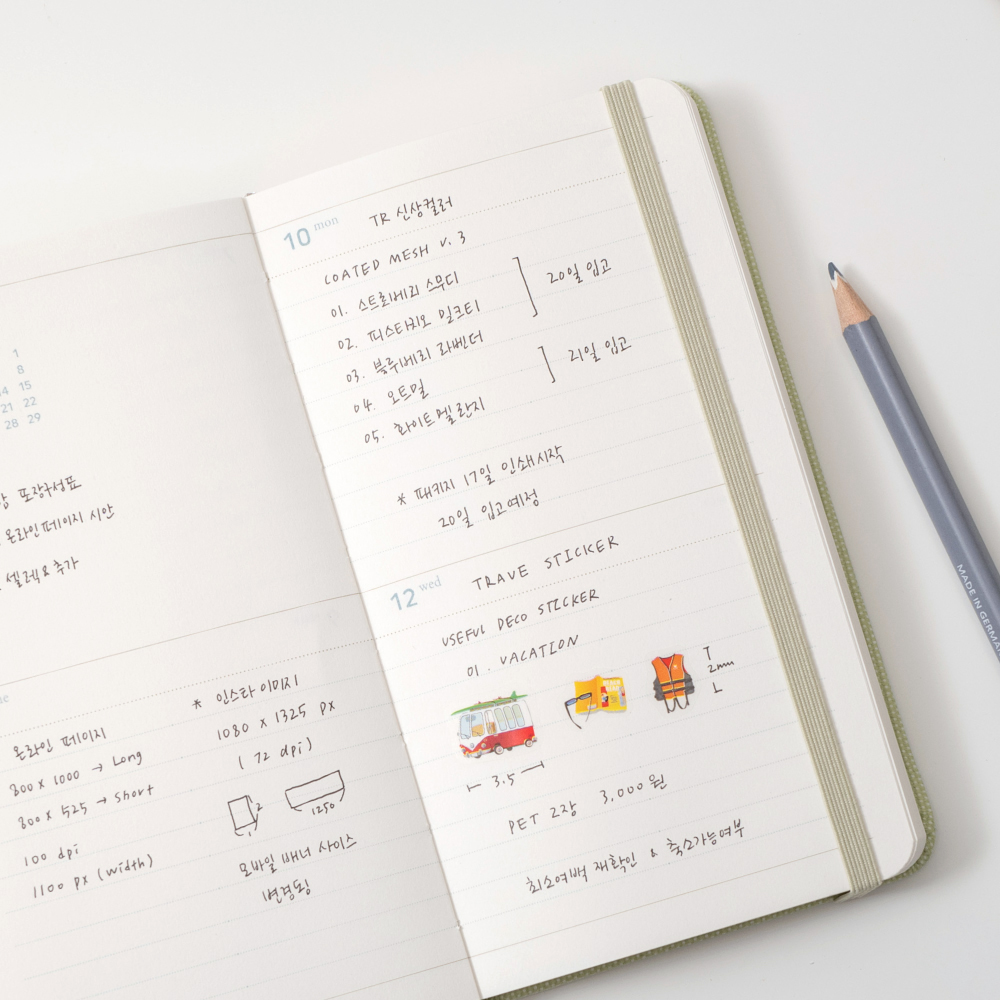 1
8
14 15
21 22
28 29
포장구성표
온라인페이지 시안
셀렉 & 추가
온라인 페이지
800 x 1000 → Long
800 x 525 → short
100 dpi
1100 px (width)
* 인스타 이미지
1080 x 1325 px
( 72 dpi )
2
1
1250
모바일 배너 사이즈
변경됨
10 mon TR 신상컬러
COATED MESH V. 3
01. 스트로베리 스무디
02. 피스타치오 밀크티
20일 입고
03. 블루베리 라벤더
04. 오트밀
21일 입고
05. 화이트멜란지
* 패키지 17일 인쇄시작
20일 입고예정
12 wed TRAVE STICKER
USEFUL DECO STICKER
01. VACATION
2mm
3.5
PET 2장 3,000원
최소여백 재확인 & 축소가능여부
MADE IN GERMAN